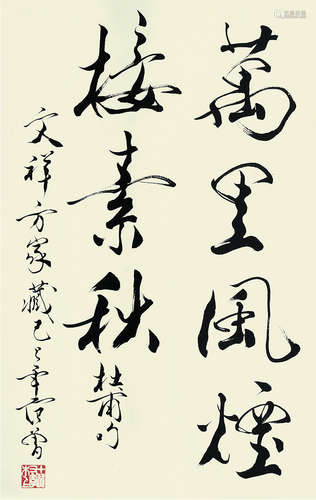 萬里風煙
接素秋 杜甫句
文祥方家藏己巳年范曾